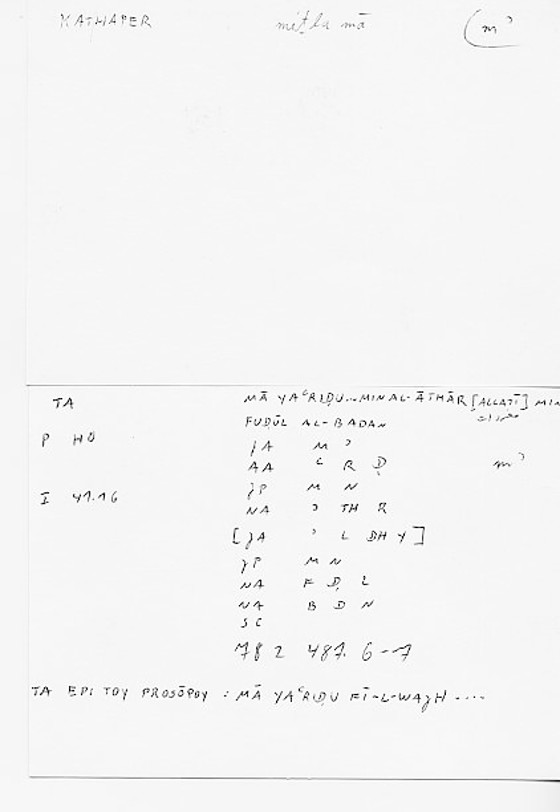 KATHAPER mitla mā (m ʾ
TA MĀ YAʿRIḌU...MIN AL-ĀTHĀR [ALLATĪ] MIN
FUḌŪL AL-BADAN
P HO JA M ʾ
AA ʿ R Ḍ m ʾ
JP M N
I 47.16 NA ʾ TH R
[JA ʾ L DH Y]
JP M N
NA F Ḍ L
NA B D N
SC
782 487. 6-7
TA EPI TOY PROSŌPOY : MĀ YAʿRIḌU FĪ-L-WAJH ....